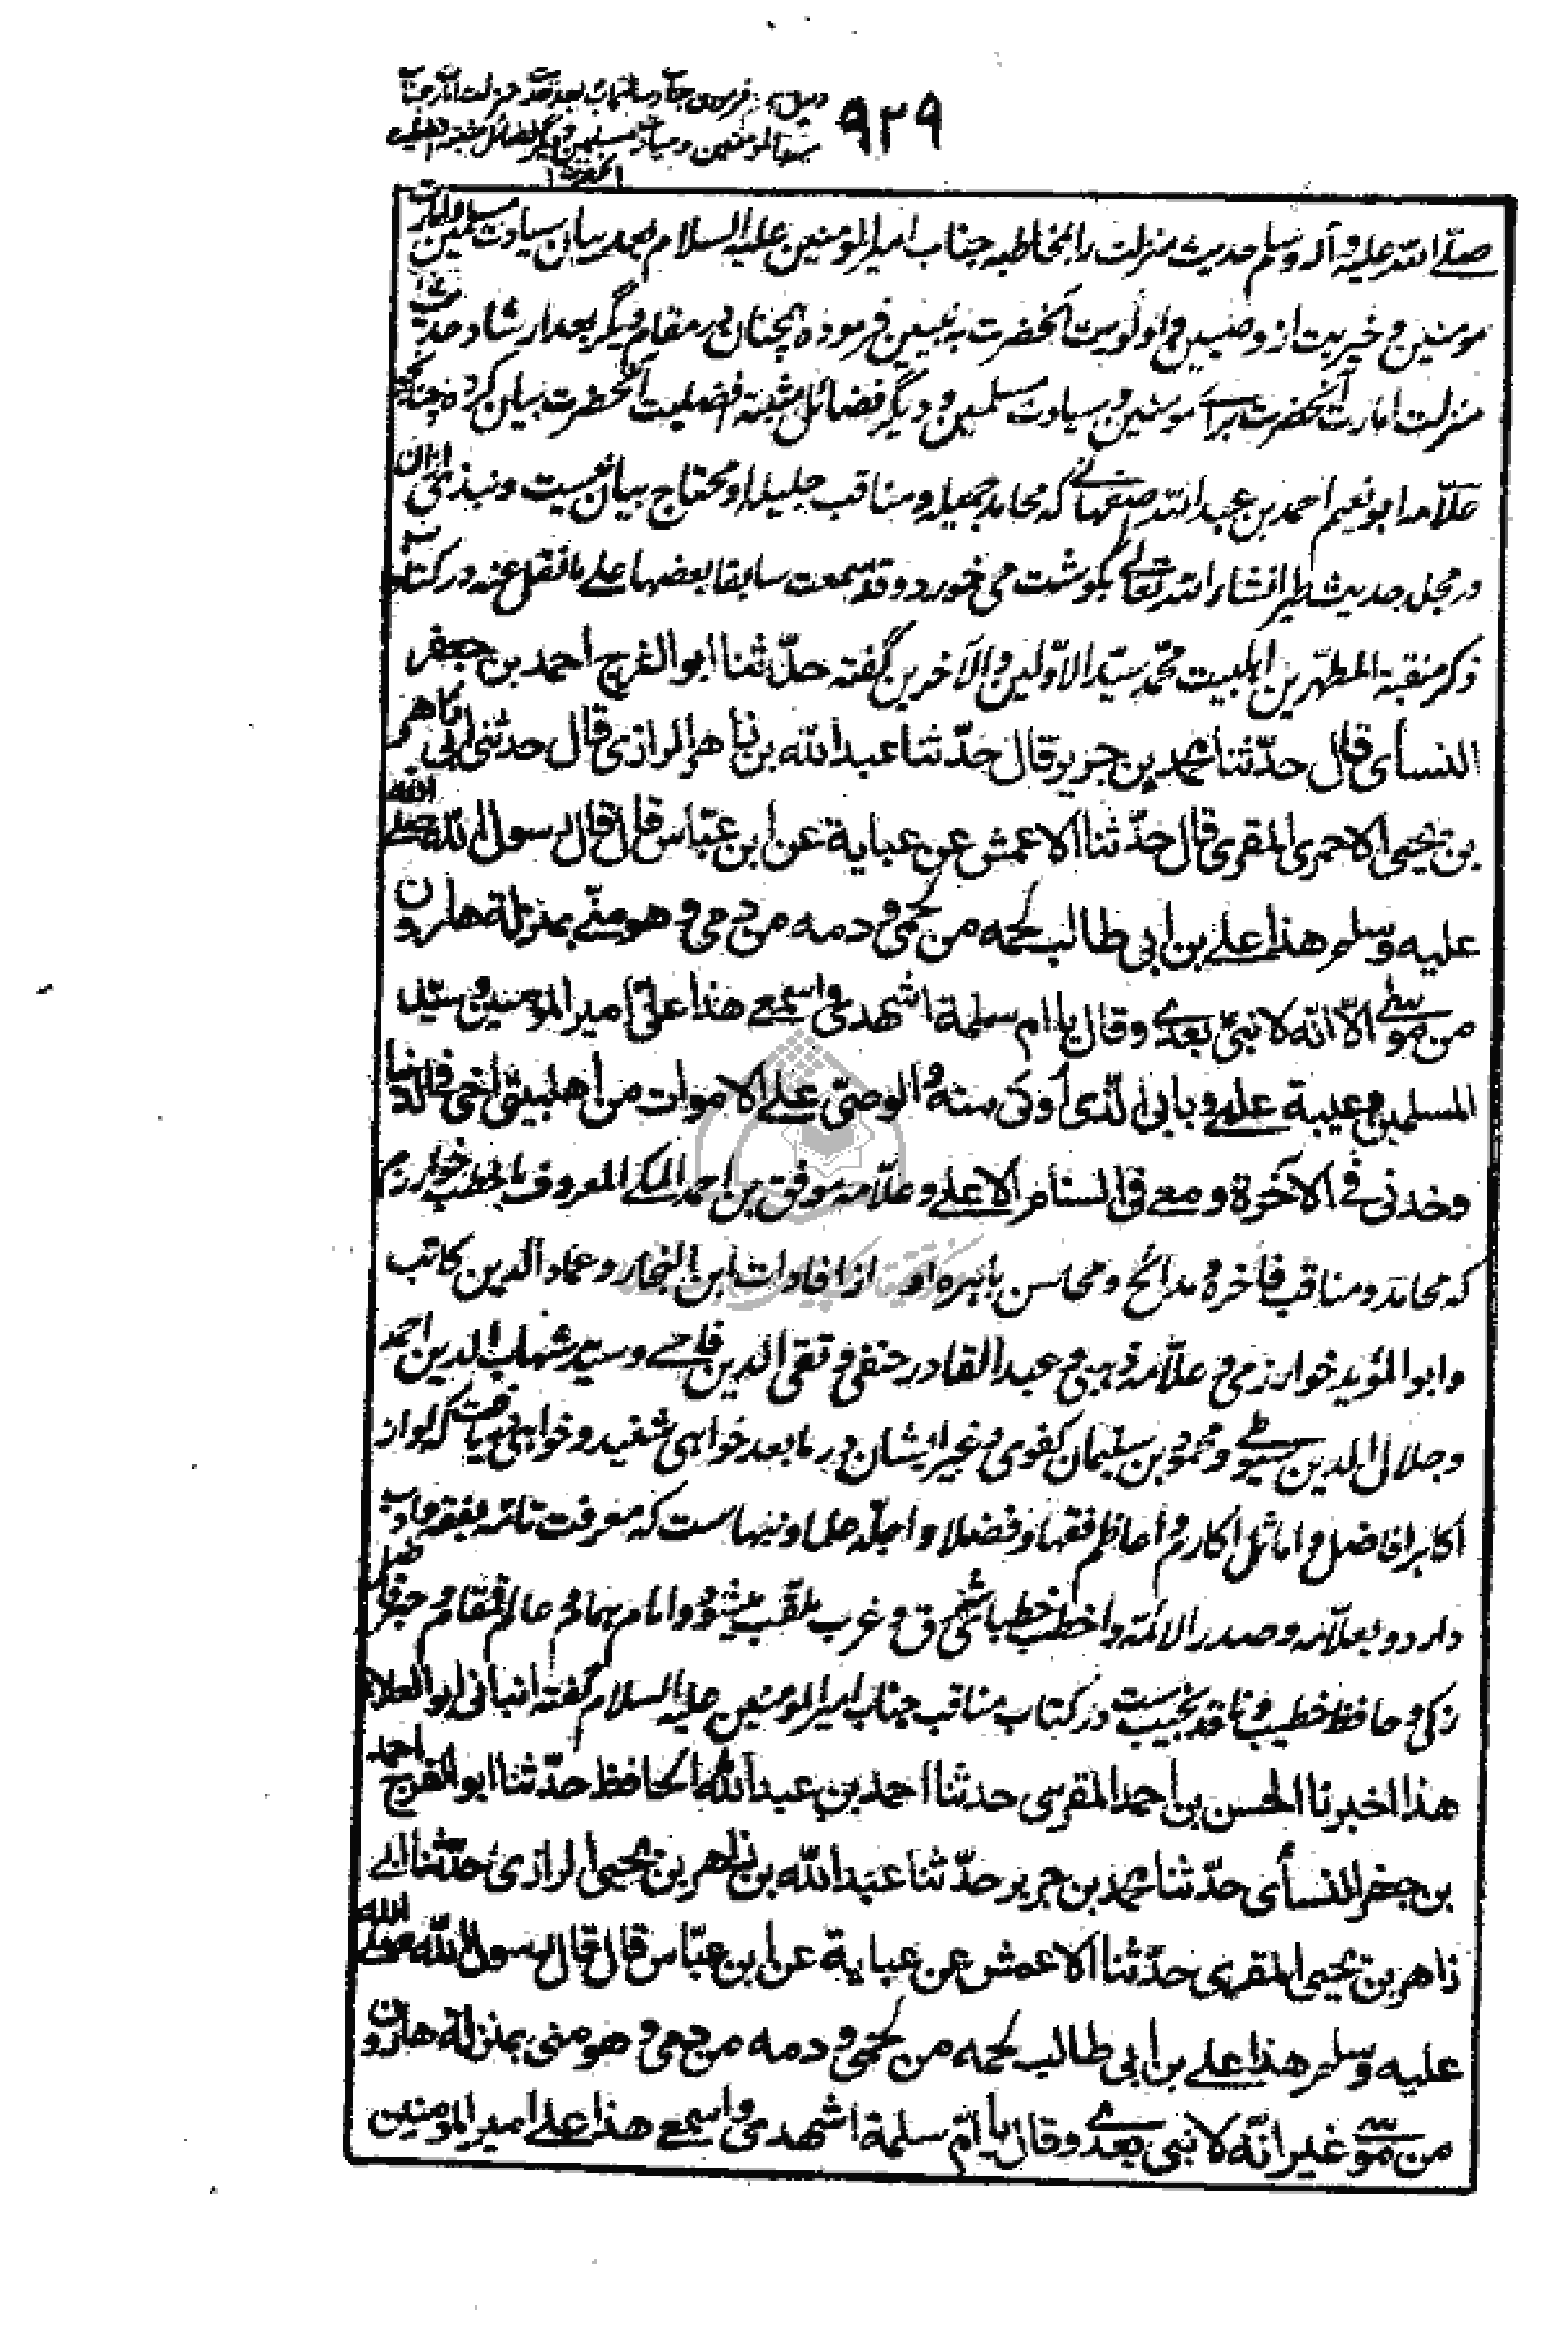 ۹۲۹
صلّے اللہ علیہ وآلہ وسلم حدیث منزلت را بمخاطبہ جناب امیرالمومنین علیہ السلام بعد بیان سیادت مسلمین وامارت
مومنین و خیریت از وصیین و اولویت آنحضرت بہ نبیین فرمودہ ہمچنان در مقام دیگر بعد ارشاد حدیث
منزلت امارت آنحضرت براے مومنین و سیادت مسلمین و دیگر فضائل مثبتہ افضلیت آنحضرت بیان کردہ چنانچہ
علّامہ ابو نعیم احمد بن عبد اللہ اصفہانے کہ محامد جمیلہ و مناقب جلیلہ او محتاج بیان نیست و نبذی ازان
در مجلد حدیث طیر انشاء اللہ تعالے بگوشت می خورد وقد سمعت سابقا بعضها علے ما نقل عنہ در کتاب
ذکر منقبة المطهّرین اهلبیت محمّد سیّد الاوّلین والآخرین گفته حدّثنا ابو الفرج احمد بن جعفر
النسأی قال حدّثنا محمد بن جریر قال حدّثنا عبد الله بن ناهر الرازی قال حدثنی ابی ناهر
بن یحیی الاحمری المقری قال حدّثنا الاعمش عن عبایة عن ابن عبّاس قال قال رسول الله صلے الله
علیه وسلم هذا علے بن ابی طالب لحمه من لحمی و دمه من دمی و هو منّے بمنزلة هارون
من موسے الّا انّه لا نبیّ بعدے وقال یا ام سلمة اشهدی واسمعے هذا علیّ امیر المؤمنین و سیّد
المسلمین وعیبة علمے وبابی الّذی أوتی منه والوصیّ علے الاموات من اهلبیتی اخی فی الدنیا
وخدنی فے الآخرة ومعے فی السنام الاعلے و علّامہ موفق بن احمد المکے المعروف باخطب خوارزم
کہ محامد و مناقب فاخرہ و مدائح و محاسن باہرہ او از افادات ابن النجار و عماد الدین کاتب
و ابو المؤید خوارزمی و علّامہ ذہبی و عبد القادر حنفی و تقی الدین فاسے و سید شہاب الدین احمد
و جلال الدین سیوطے و محمود بن سلیمان کفوی و غیر ایشان در ما بعد خواہی شنید و خواہی یافت کہ او از
اکابر افاضل و اماثل اکارم و اعاظم فقہا و فضلا و اجلّہ علما و نبہاست کہ معرفت تامّہ بفقہ و ادب
دارد و بعلّامہ و صدر الائمّہ و اخطب خطبای شرق و غرب ملقّب میشود و امام ہمام و عالم قمقام و حبر فاضل
زکی و حافظ خطیب و ناقد نجیب ست در کتاب مناقب جناب امیر المومنین علیہ السلام گفتہ انبانی ابو العلاء
هذا اخبرنا الحسن بن احمد المقرسی حدثنا احمد بن عبد الله الحافظ حدّثنا ابو الفرج احمد
بن جعفر النسأی حدّثنا محمد بن جریر حدّثنا عبد الله بن ناهر بن یحیی الرازی حدّثنا ابے
ناهر بن یحیی المقری حدّثنا الاعمش عن عبایة عن ابن عبّاس قال قال رسول الله صلے الله
علیه وسلم هذا علے بن ابی طالب لحمه من لحمی و دمه من دمی و هو منی بمنزلة هارون
من موسے غیر انّه لا نبی بعدے وقال یا امّ سلمة اشهدی واسمعے هذا علے امیر المؤمنین